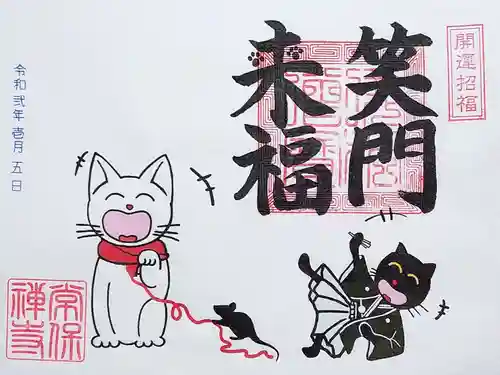 開運招福
笑門
来福
令和弐年壱月五日
常保
禅寺